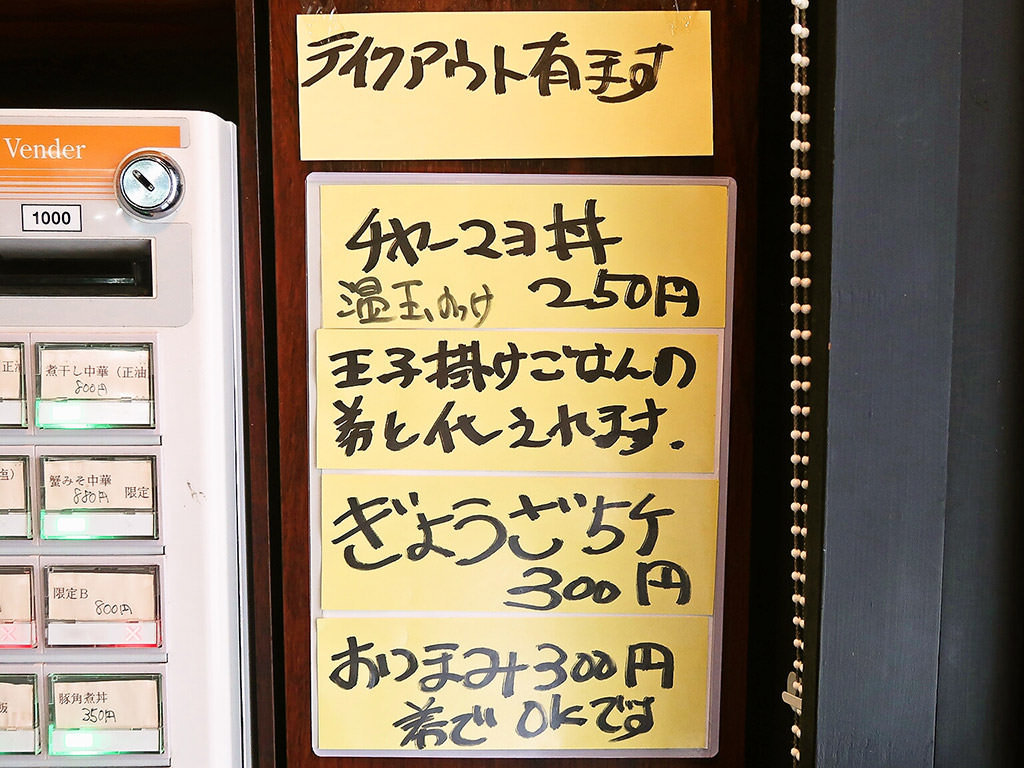 テイクアウト有ます
チャーマヨ丼
温玉のっけ 250円
玉子掛けごはんの
券と代えれます.
ぎょうざ5ケ
300円
おつまみ300円
券でOKです
Vender
1000
煮干し中華(正油
800円
蟹みそ中華
880円 限定
限定B
800円
豚角煮丼
350円